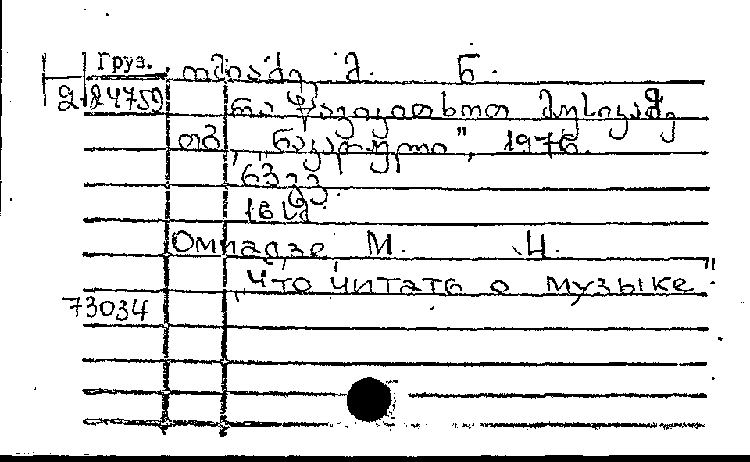 Груз.
ომიაძე მ. ნ.
2.24759 რა წავიკითხოთ მუსიკაზე
თბ. „ნაკადული", 1976.
63 გვ.
16 სმ.
Омиадзе М. Н.
„Что читать о музыке"
73034